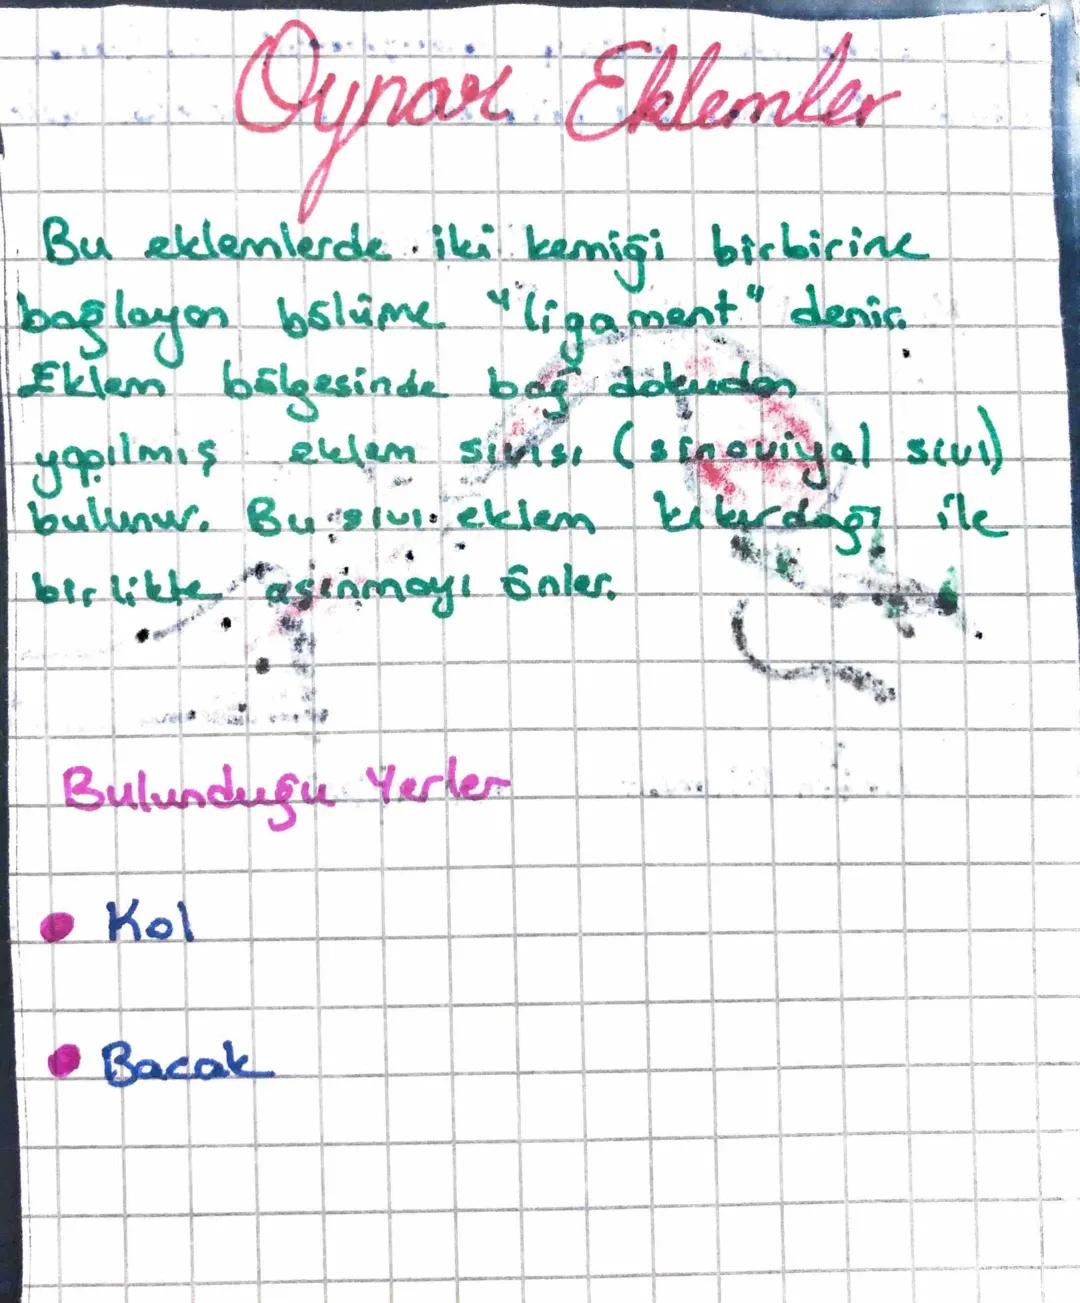 Oynar Eklemler
Bu eklemlerde iki kemiği birbirine
bağlayan bölüme "ligament" denir.
Eklem bölgesinde bağ dokudan
yapılmış eklem sıvısı (sinoviyal sıvı)
bulunur. Bu sıvı eklem kıkırdağı ile
birlikte aşınmayı önler.
Bulunduğu Yerler
Kol
Bacak